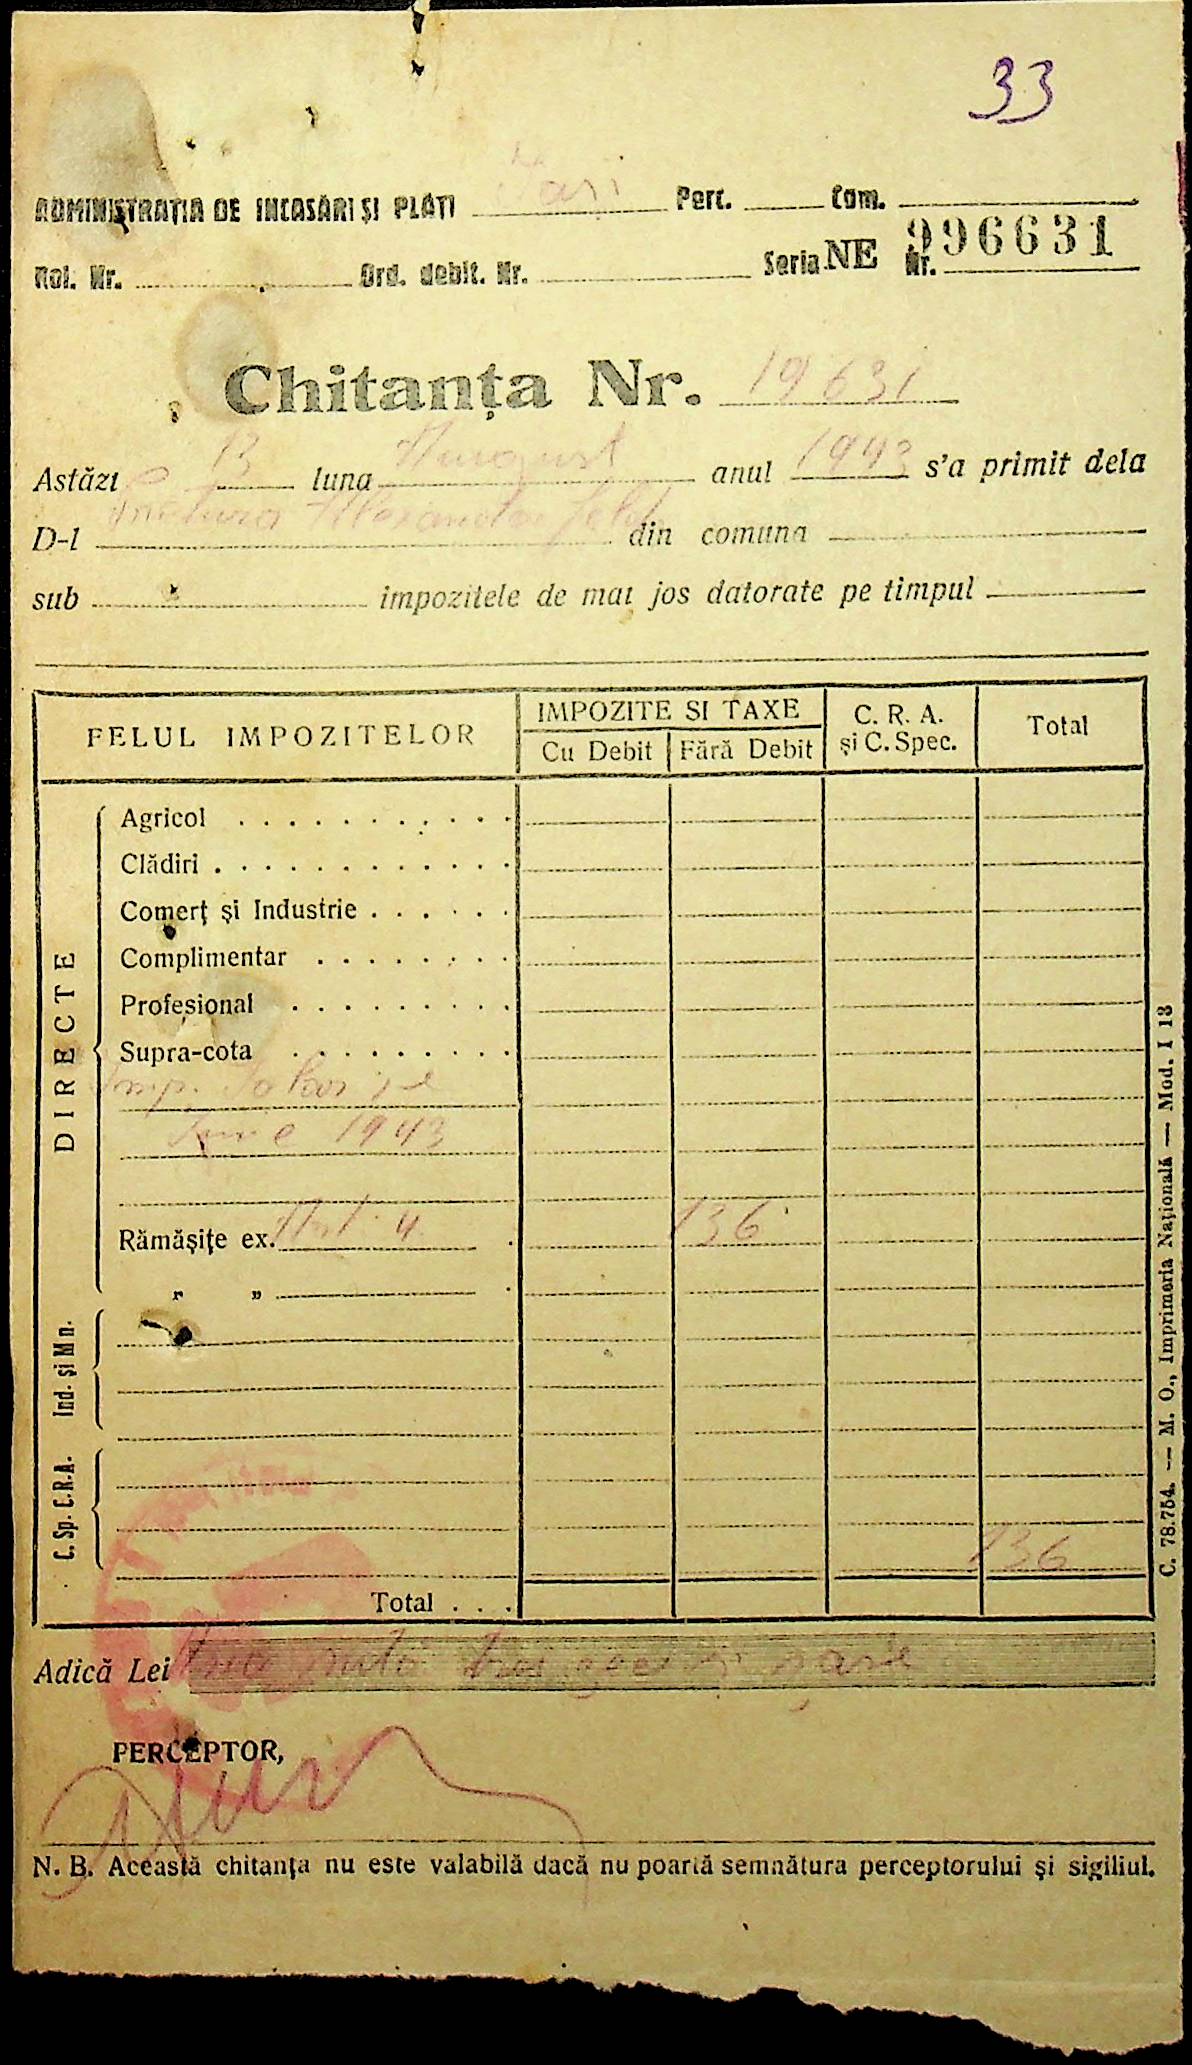 33
ADMINISTRAȚIA DE INCASĂRI ȘI PLĂTI Iași Perc. Com.
Rol. Nr. Ord. debit. Nr. Seria NE Nr. 996631
Chitanța Nr. 19631
Astăzi 13 luna August anul 1943 s'a primit dela
D-l din comuna
sub impozitele de mai jos datorate pe timpul
FELUL IMPOZITELOR IMPOZITE SI TAXE C. R. A. și C. Spec. Total
Cu Debit Fără Debit
DIRECTE
Agricol
Clădiri
Comerț și Industrie
Complimentar
Profesional
Supra-cota
Imp.
1943
Rămășițe ex. Art. 4 136
" "
Ind. și Mn.
C. Sp. C.R.A.
136
Total . . .
Adică Lei una sută trei zeci și șase
PERCEPTOR,
N. B. Această chitanța nu este valabilă dacă nu poartă semnătura perceptorului și sigiliul.
C. 78.754. — M. O., Imprimeria Națională — Mod. I 13